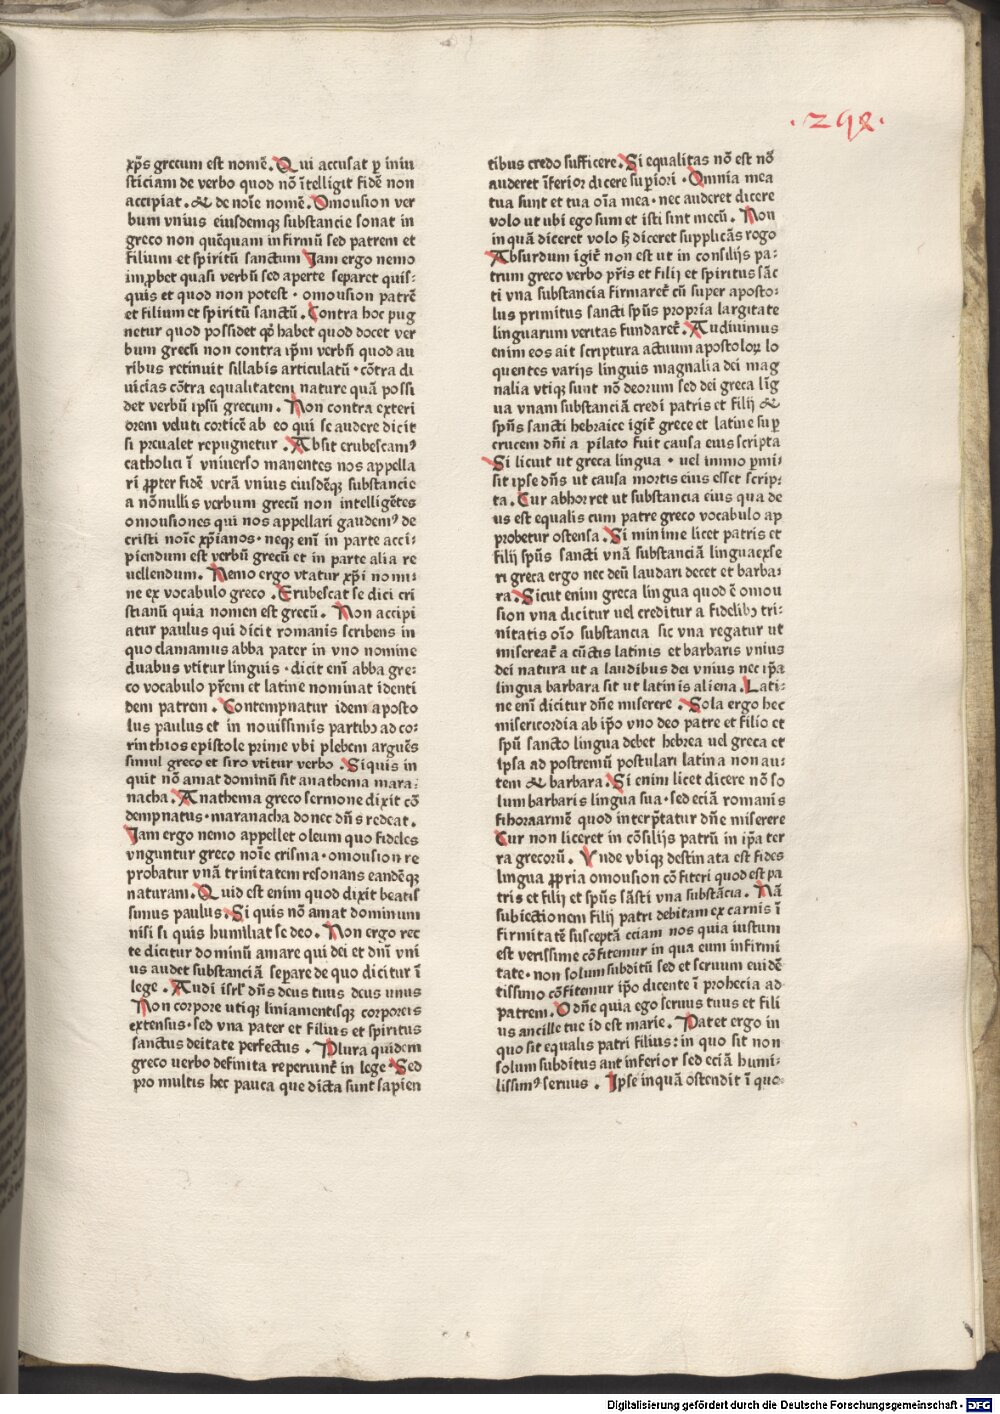 ·298·
xp̄s grecum est nomē. Qui accusat ꝑ iniu
sticiam de verbo quod nō ītelligit fidē non
accipiat. & de noīe nomē. Omousion ver
bum vnius eiusdemqꝫ substancie sonat in
greco non quēquam infirmū sed patrem et
filium et spiritū sanctum Jam ergo nemo
improbet quasi verbū sed aperte separet quis⸗
quis et quod non potest · omousion patrē
et filium et spiritū sanctū. Contra hoc pug
netur quod possidet qd̄ habet quod docet ver
bum grecū non contra ip̄m verbū quod au
ribus retinuit sillabis articulatū · cōtra di
uicias cōtra equalitatem nature quā possi
det verbū ipsū grecum. Non contra exteri
orem veluti corticē ab eo qui se audere dicit
si preualet repugnetur. Absit erubescamꝰ
catholici ī vniuerso manentes nos appella
ri ꝓpter fidē verā vnius eiusdēqꝫ substancie
a nōnullis verbum grecū non intelligētes
omousiones qui nos appellari gaudemꝰ de
cristi noīe xp̄ianos · neqꝫ enī in parte acci⸗
piendum est verbū grecū et in parte alia re
uellendum. Nemo ergo vtatur xp̄i nomi⸗
ne ex vocabulo greco. Erubescat se dici cri
stianū quia nomen est grecū. Non accipi
atur paulus qui dicit romanis scribens in
quo clamamus abba pater in vno nomine
duabus vtitur linguis · dicit enī abba gre⸗
co vocabulo pr̄em et latine nominat identi
dem patrem. Contempnatur idem aposto
lus paulus et in nouissimis partibꝫ ad co⸗
rinthios epistole prime vbi plebem arguēs
simul greco et siro vtitur verbo. Siquis in
quit nō amat dominū sit anathema mara⸗
nacha. Anathema greco sermone dixit cō
dempnatus · maranacha donec dn̄s redeat.
Jam ergo nemo appellet oleum quo fideles
vnguntur greco noīe crisma · omousion re
probatur vnā trinitatem resonans eandēqꝫ
naturam. Quid est enim quod dixit beatis
simus paulus. Si quis nō amat dominum
nisi si quis humiliat se deo. Non ergo rec
te dicitur dominū amare qui dei et dnī vni
us audet substanciā seꝑare de quo dicitur ī
lege. Audi isrl' dn̄s deus tuus deus unus
Non corpore utiqꝫ liniamentisqꝫ corporeis
extensus · sed vna pater et filius et spiritus
sanctus deitate perfectus. Plura quidem
greco uerbo definita reperiunt̄ in lege Sed
pro multis hec pauca que dicta sunt sapien
tibus credo sufficere. Si equalitas nō est nō
auderet īferior dicere suꝑiori · Omnia mea
tua sunt et tua oīa mea · nec auderet dicere
volo ut ubi ego sum et isti sint mecū. Non
inquā diceret volo sꝫ diceret supplicās rogo
Absurdum igit̄ non est ut in consilijs pa⸗
trum greco verbo pr̄is et filij et spiritus sāc
ti vna substancia firmaret̄ cū super aposto⸗
lus primitus sancti sp̄us propria largitate
linguarum veritas fundaret̄. Audiuimus
enim eos ait scriptura actuum apostoloꝝ lo
quentes varijs linguis magnalia dei mag
nalia vtiqꝫ sunt nō deorum sed dei greca līg
ua vnam substanciā credi patris et filij &
sp̄us sancti hebraice igit̄ grece et latine suꝑ
crucem dn̄i a pilato fuit causa eius scripta
Si licuit ut greca lingua · vel immo ꝑmi⸗
sit ipse dn̄s ut causa mortis eius esset scrip⸗
ta. Cur abhorret ut substancia eius qua de
us est equalis cum patre greco vocabulo ap
probetur ostensa. Si minime licet patris et
filij sp̄us sancti vnā substanciā lingua exse
ri greca ergo nec deū laudari decet et barba⸗
ra. Sicut enim greca lingua quod ē omou
sion vna dicitur uel creditur a fidelibꝫ tri⸗
nitatis oīo substancia sic vna regatur ut
misereat̄ a cūctis latinis et barbaris vnius
dei natura ut a laudibus dei vnius nec ip̄a
lingua barbara sit ut latinis aliena. Lati⸗
ne enī dicitur dn̄e miserere. Sola ergo hec
misericordia ab ip̄o vno deo patre et filio et
sp̄u sancto lingua debet hebrea uel greca et
ipsa ad postremū postulari latina non au⸗
tem & barbara. Si enim licet dicere nō so
lum barbaris lingua sua · sed eciā romanis
sihoraarmē quod interp̄tatur dn̄e miserere
Cur non liceret in cōsilijs patrū in ip̄a ter
ra grecorū. Vnde vbiqꝫ destinata est fides
lingua ꝓpria omousion cōfiteri quod est pa
tris et filij et sp̄us sāsti vna substācia. Nā
subiectionem filij patri debitam ex carnis ī
firmitatē susceptā eciam nos quia iustum
est verissime cōfitemur in qua eum infirmi
tate · non solum subditū sed et seruum euidē
tissimo cōfitemur ip̄o dicente ī prohecia ad
patrem. O dn̄e quia ego seruus tuus et fili
us ancille tue id est marie. Patet ergo in
quo sit equalis patri filius : in quo sit non
solum subditus aut inferior sed eciā humi⸗
lissimꝰ seruus. Ipse inquā ostendit ī quo⸗
Digitalisierung gefördert durch die Deutsche Forschungsgemeinschaft - DFG